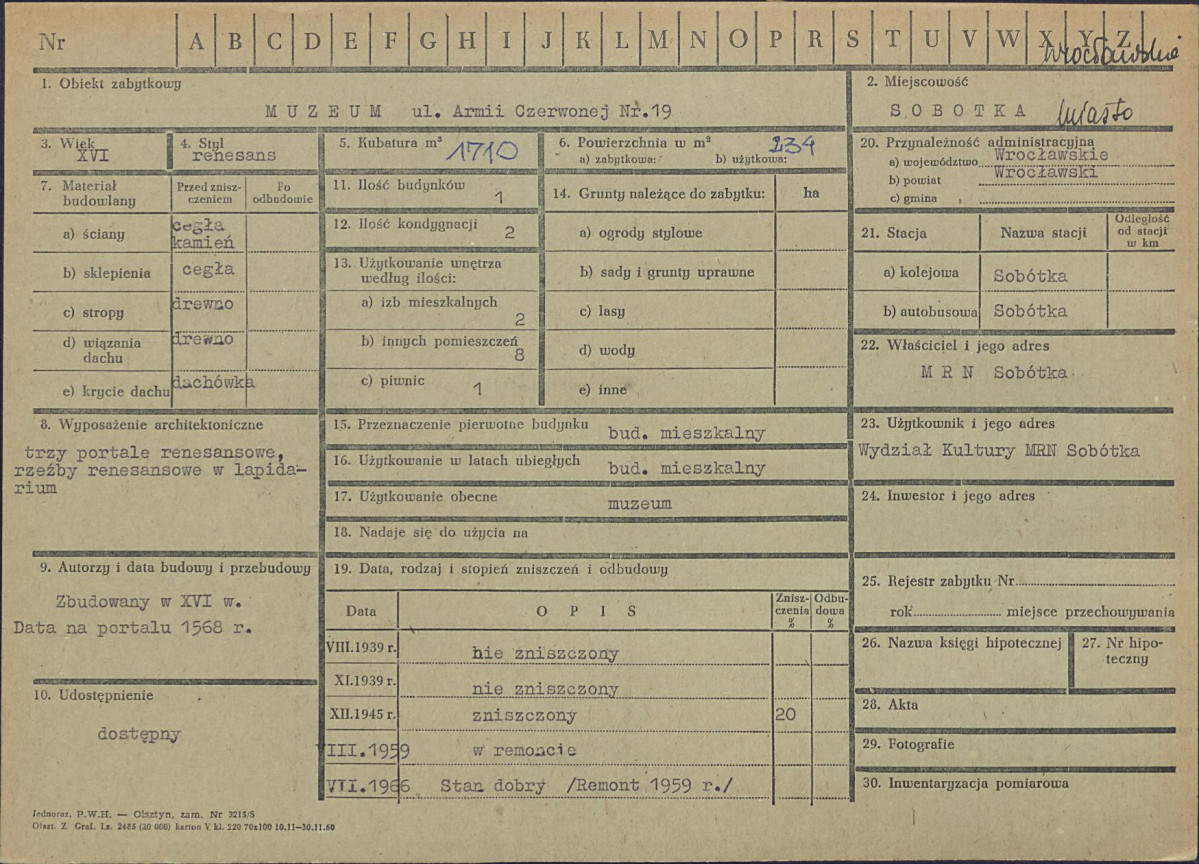 Nr A B C D E F G H I J K L M N O P R S T U V W X Y Z
wrocławskie
1. Obiekt zabytkowy
MUZEUM ul. Armii Czerwonej Nr.19
2. Miejscowość
SOBOTKA miasto
3. Wiek
XVI
4. Styl
renesans
5. Kubatura m³ 1710
6. Powierzchnia w m² 234
a) zabytkowa: b) użytkowa:
7. Materiał budowlany
Przed zniszczeniem
Po odbudowie
a) ściany cegła kamień
b) sklepienia cegła
c) stropy drewno
d) wiązania dachu drewno
e) krycie dachu dachówka
8. Wyposażenie architektoniczne
trzy portale renesansowe,
rzeźby renesansowe w lapida-
rium
9. Autorzy i data budowy i przebudowy
Zbudowany w XVI w.
Data na portalu 1568 r.
10. Udostępnienie
dostępny
11. Ilość budynków 1
12. Ilość kondygnacji 2
13. Użytkowanie wnętrza
według ilości:
a) izb mieszkalnych 2
b) innych pomieszczeń 8
c) piwnic 1
14. Grunty należące do zabytku: ha
a) ogrody stylowe
b) sady i grunty uprawne
c) lasy
d) wody
e) inne
15. Przeznaczenie pierwotne budynku bud. mieszkalny
16. Użytkowanie w latach ubiegłych bud. mieszkalny
17. Użytkowanie obecne muzeum
18. Nadaje się do użycia na
19. Data, rodzaj i stopień zniszczeń i odbudowy
Data OPIS Zniszczenia % Odbudowa %
VIII.1939 r. nie zniszczony
XI.1939 r. nie zniszczony
XII.1945 r. zniszczony 20
VIII.1959 w remoncie
VII.1966 Stan dobry /Remont 1959 r./
20. Przynależność administracyjna
a) województwo Wrocławskie
b) powiat Wrocławski
c) gmina
21. Stacja Nazwa stacji Odległość od stacji w km
a) kolejowa Sobótka
b) autobusowa Sobótka
22. Właściciel i jego adres
M R N Sobótka
23. Użytkownik i jego adres
Wydział Kultury MRN Sobótka
24. Inwestor i jego adres
25. Rejestr zabytku Nr
rok miejsce przechowywania
26. Nazwa księgi hipotecznej
27. Nr hipo-
teczny
28. Akta
29. Fotografie
30. Inwentaryzacja pomiarowa
Jednoraz. P.W.H. — Olsztyn, zam. Nr 3215/S
Olszt. Z. Graf. Lz. 2485 (20 000) karton V kl. 220 70x100 10.11—30.11.60